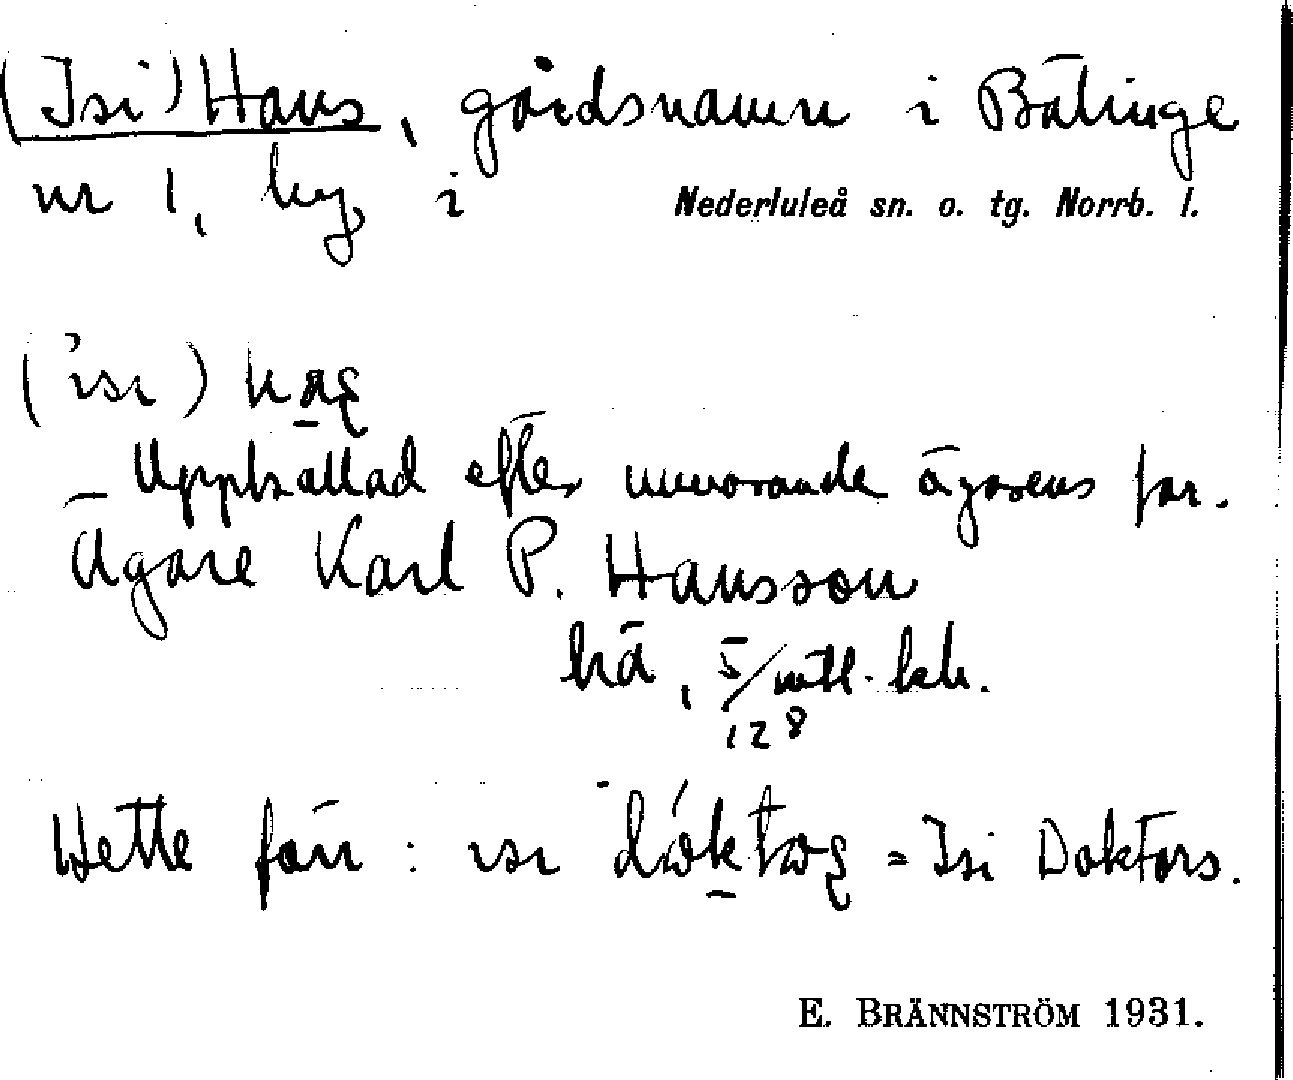 (Isi) Hans, gårdsnamn i Bälinge
nr 1, by, i Nederluleå sn. o. tg. Norrb. l.
(isi)
Uppkallad efter nuvarande ägarens far.
Ägare Karl P. Hansson
hä, 5/128 mtl. kr.
Hette förr: isi = Isi Doktors.
E. BRÄNNSTRÖM 1931.